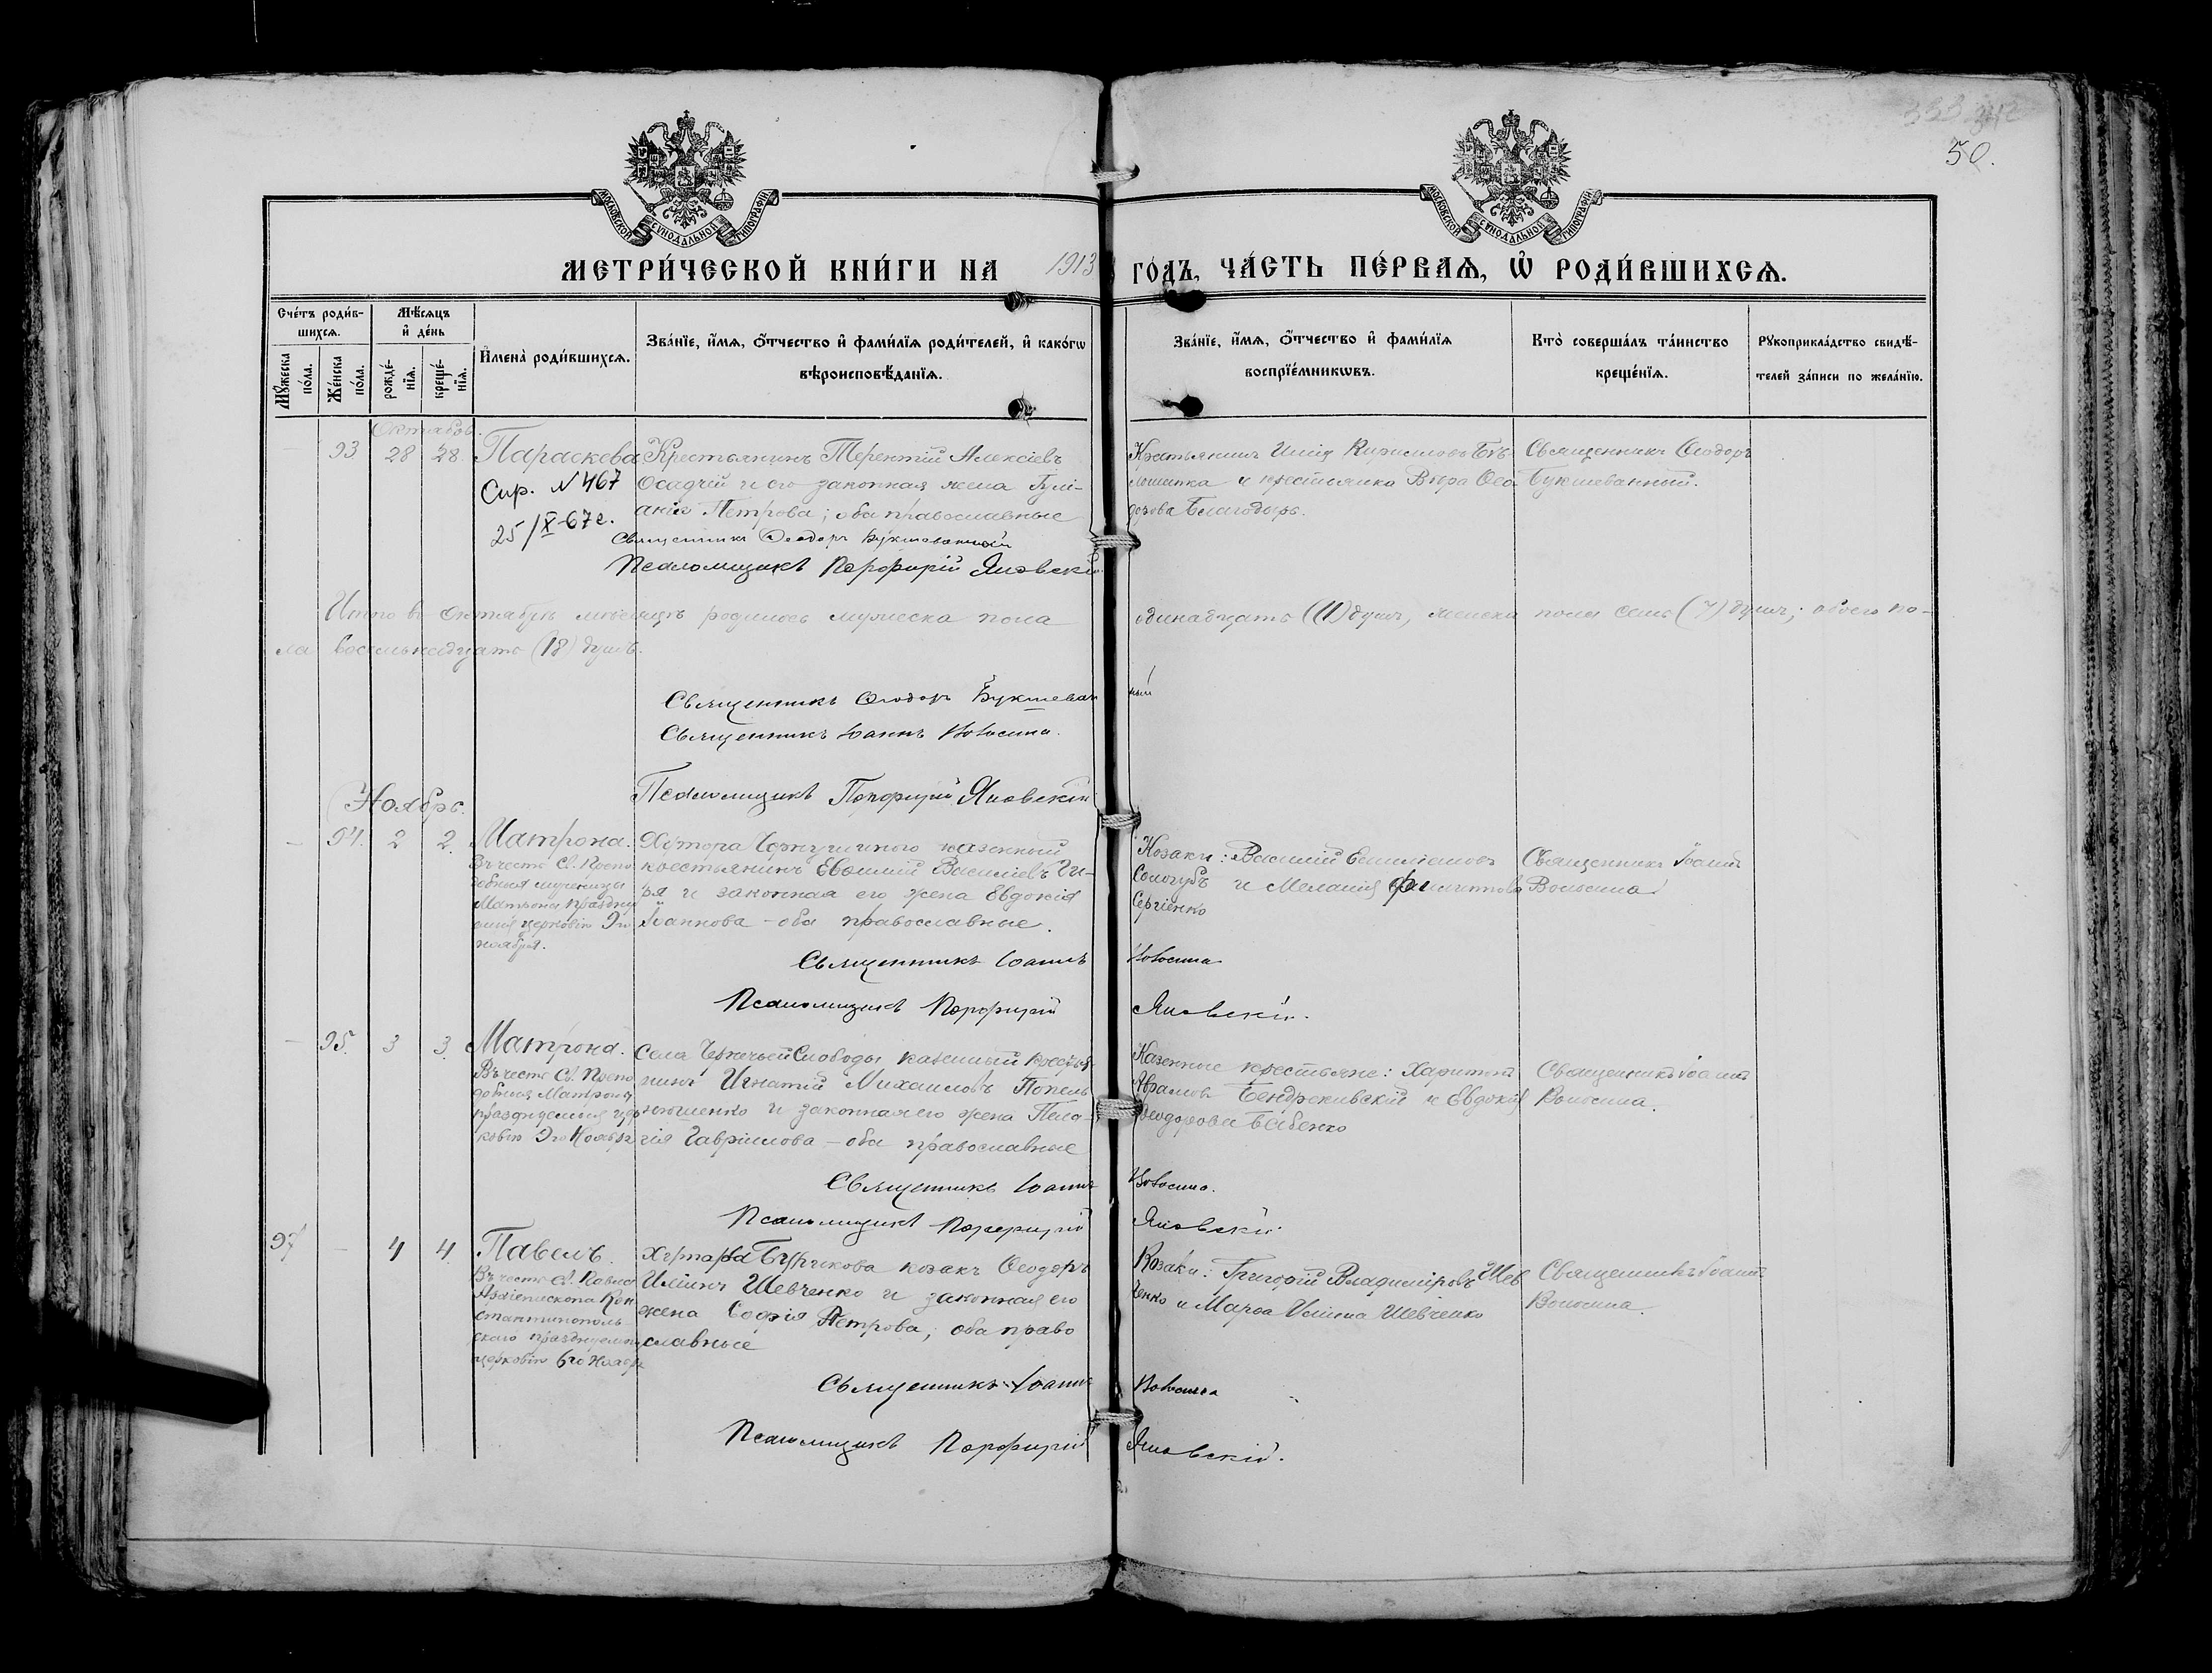 333 342
50.
МОСКОВСКОЙ СУНОДАЛЬНОЙ ТИПОГРАФІИ
МОСКОВСКОЙ СУНОДАЛЬНОЙ ТИПОГРАФІИ
МЕТРИ́ЧЕСКОЙ КНИ́ГИ НА 1913 ГО́ДЪ, ЧА́СТЬ ПЕ́РВАѦ, Ѡ҆ РОДИ́ВШИХСѦ.
Сче́тъ роди́в-
шихсѧ.
Мꙋ́жеска по́ла.
Же́нска по́ла.
Мѣ́сѧцъ
и҆ де́нь
рожде́-
нїѧ.
креще́-
нїѧ.
И҆мена̀ роди́вшихсѧ.
Зва́нїе, и҆́мѧ, ѻ҆́тчество и҆ фами́лїѧ роди́телей, и҆ како́гѡ
вѣроисповѣ́данїѧ.
Зва́нїе, и҆́мѧ, ѻ҆́тчество и҆ фами́лїѧ
воспрїе́мникѡвъ.
Кто̀ соверша́лъ та́инство
креще́нїѧ.
Рꙋкоприкла́дство свидѣ́-
телей за́писи по жела́нїю.
Октябрь.
— 93 28 28. Параскева
Спр. N 467
25/X-67г.
Крестьянинъ Терентій Алексіевъ
Осадчій и его законная жена Гулі-
анія Петрова; оба православные
Священникъ Ѳеодоръ Букшеванный
Псаломщикъ Порфирій Яновскій
Крестьянинъ Илія Кириловъ Бѣ-
лошапка и крестьянка Вѣра Ѳео-
дорова Благодырь.
Священникъ Ѳеодоръ
Букшеванный.
Итого въ Октябрѣ мѣсяцѣ родилось мужеска пола одинадцать (11) душъ, женска пола семь (7) душъ; обоего по-
ла восемьнадцать (18) душъ.
Священникъ Ѳеодоръ Букшеванный
Священникъ Іоаннъ Волосина.
Псаломщикъ Порфирій Яновскій
Ноябрь.
— 94. 2 2. Матрона.
Въ честь Св. Препо
добныя мученицы
Матроны праздну
ноября.
Хутора казенный
крестьянинъ Евѳимій Василіевъ Ги-
ря и законная его жена Евдокія
Іоаннова — оба православные.
Священникъ Іоаннъ Волосина
Псаломщикъ Порфирій Яновскій.
Козаки: Василій
Сологубъ и Меланія Филиппова
Сергіенко
Священникъ Іоаннъ
Волосина
— 95. 3 3. Матрона.
Въ честь Св. Препо
добныя Матроны
празднуемыя цер
ковію 9го Ноября
Села Чернечьей Слободы казенный крестья
нинъ Игнатій Михаиловъ Попель
нюшенко и законная его жена Пела-
гія Гавріилова — оба православные
Священникъ Іоаннъ Волосина.
Псаломщикъ Порфирій Яновскій
Казенные крестьяне: Харитонъ
Абрамовъ Бендрекивскій и Евдокія
Ѳеодорова Бабенко
Священникъ Іоаннъ
Волосина.
97 — 4 4. Павелъ.
Въ честь Св. Павла
Архіепископа Кон
стантинополь
скаго празднуемаго
церковію 6го Ноября
Хутора Бурикова козакъ Ѳеодоръ
Иліинъ Шевченко и законная его
жена Софія Петрова; оба право
славные
Священникъ Іоаннъ Волосина
Псаломщикъ Порфирій Яновскій.
Козаки: Григорій Владиміровъ Шев
ченко и Марѳа Иліина Шевченко
Священникъ Іоаннъ
Волосина.